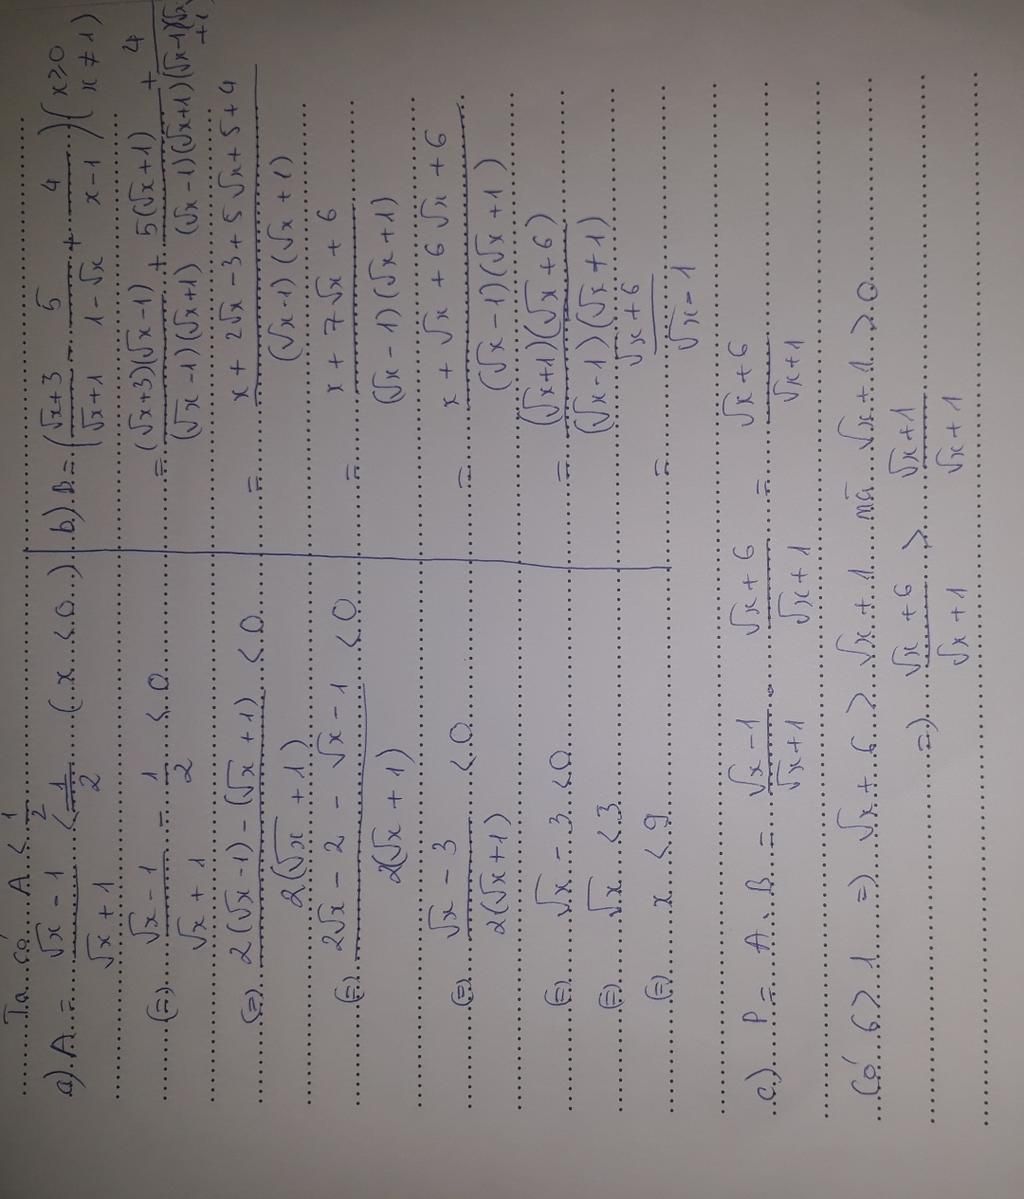 Ta có A < 1/2
a) A = (√x - 1)/(√x + 1) < 1/2 (x < 0)
(=) (√x - 1)/(√x + 1) - 1/2 < 0
(=) (2(√x - 1) - (√x + 1))/(2(√x + 1)) < 0
(=) (2√x - 2 - √x - 1)/(2(√x + 1)) < 0
(=) (√x - 3)/(2(√x + 1)) < 0
(=) √x - 3 < 0
(=) √x < 3
(=) x < 9
b) B = ((√x + 3)/(√x + 1) - 5/(1 - √x) + 4/(x - 1)) (x ≥ 0 x ≠ 1)
= ((√x + 3)(√x - 1))/((√x - 1)(√x + 1)) + (5(√x + 1))/((√x - 1)(√x + 1)) + 4/((√x - 1)(√x + 1))
= (x + 2√x - 3 + 5√x + 5 + 4)/((√x - 1)(√x + 1))
= (x + 7√x + 6)/((√x - 1)(√x + 1))
= (x + √x + 6√x + 6)/((√x - 1)(√x + 1))
= ((√x + 1)(√x + 6))/((√x - 1)(√x + 1))
= (√x + 6)/(√x - 1)
c) P = A.B = (√x - 1)/(√x + 1) . (√x + 6)/(√x + 1) = (√x + 6)/(√x + 1)
Có 6 > 1 =) √x + 6 > √x + 1 mà √x + 1 > 0
=) (√x + 6)/(√x + 1) > (√x + 1)/(√x + 1)